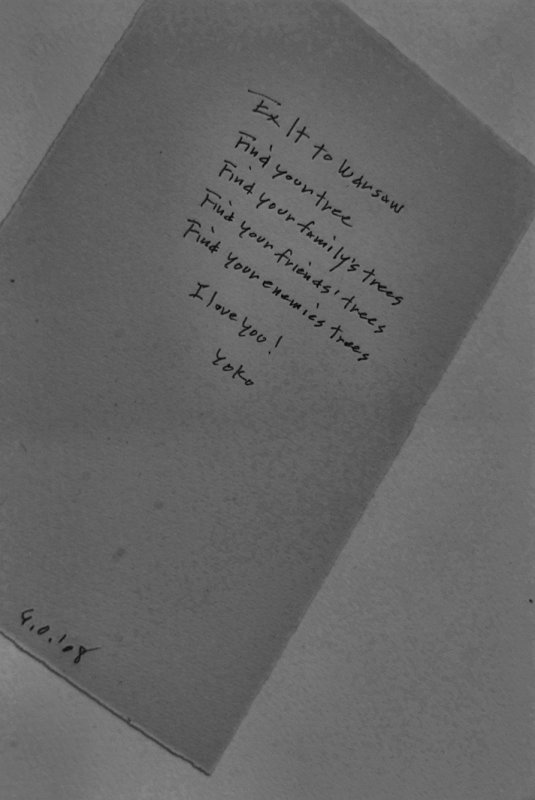 Ex It to Warsaw
Find your tree
Find your family's trees
Find your friends' trees
Find your enemies trees
I love you!
Yoko
y.o.'08